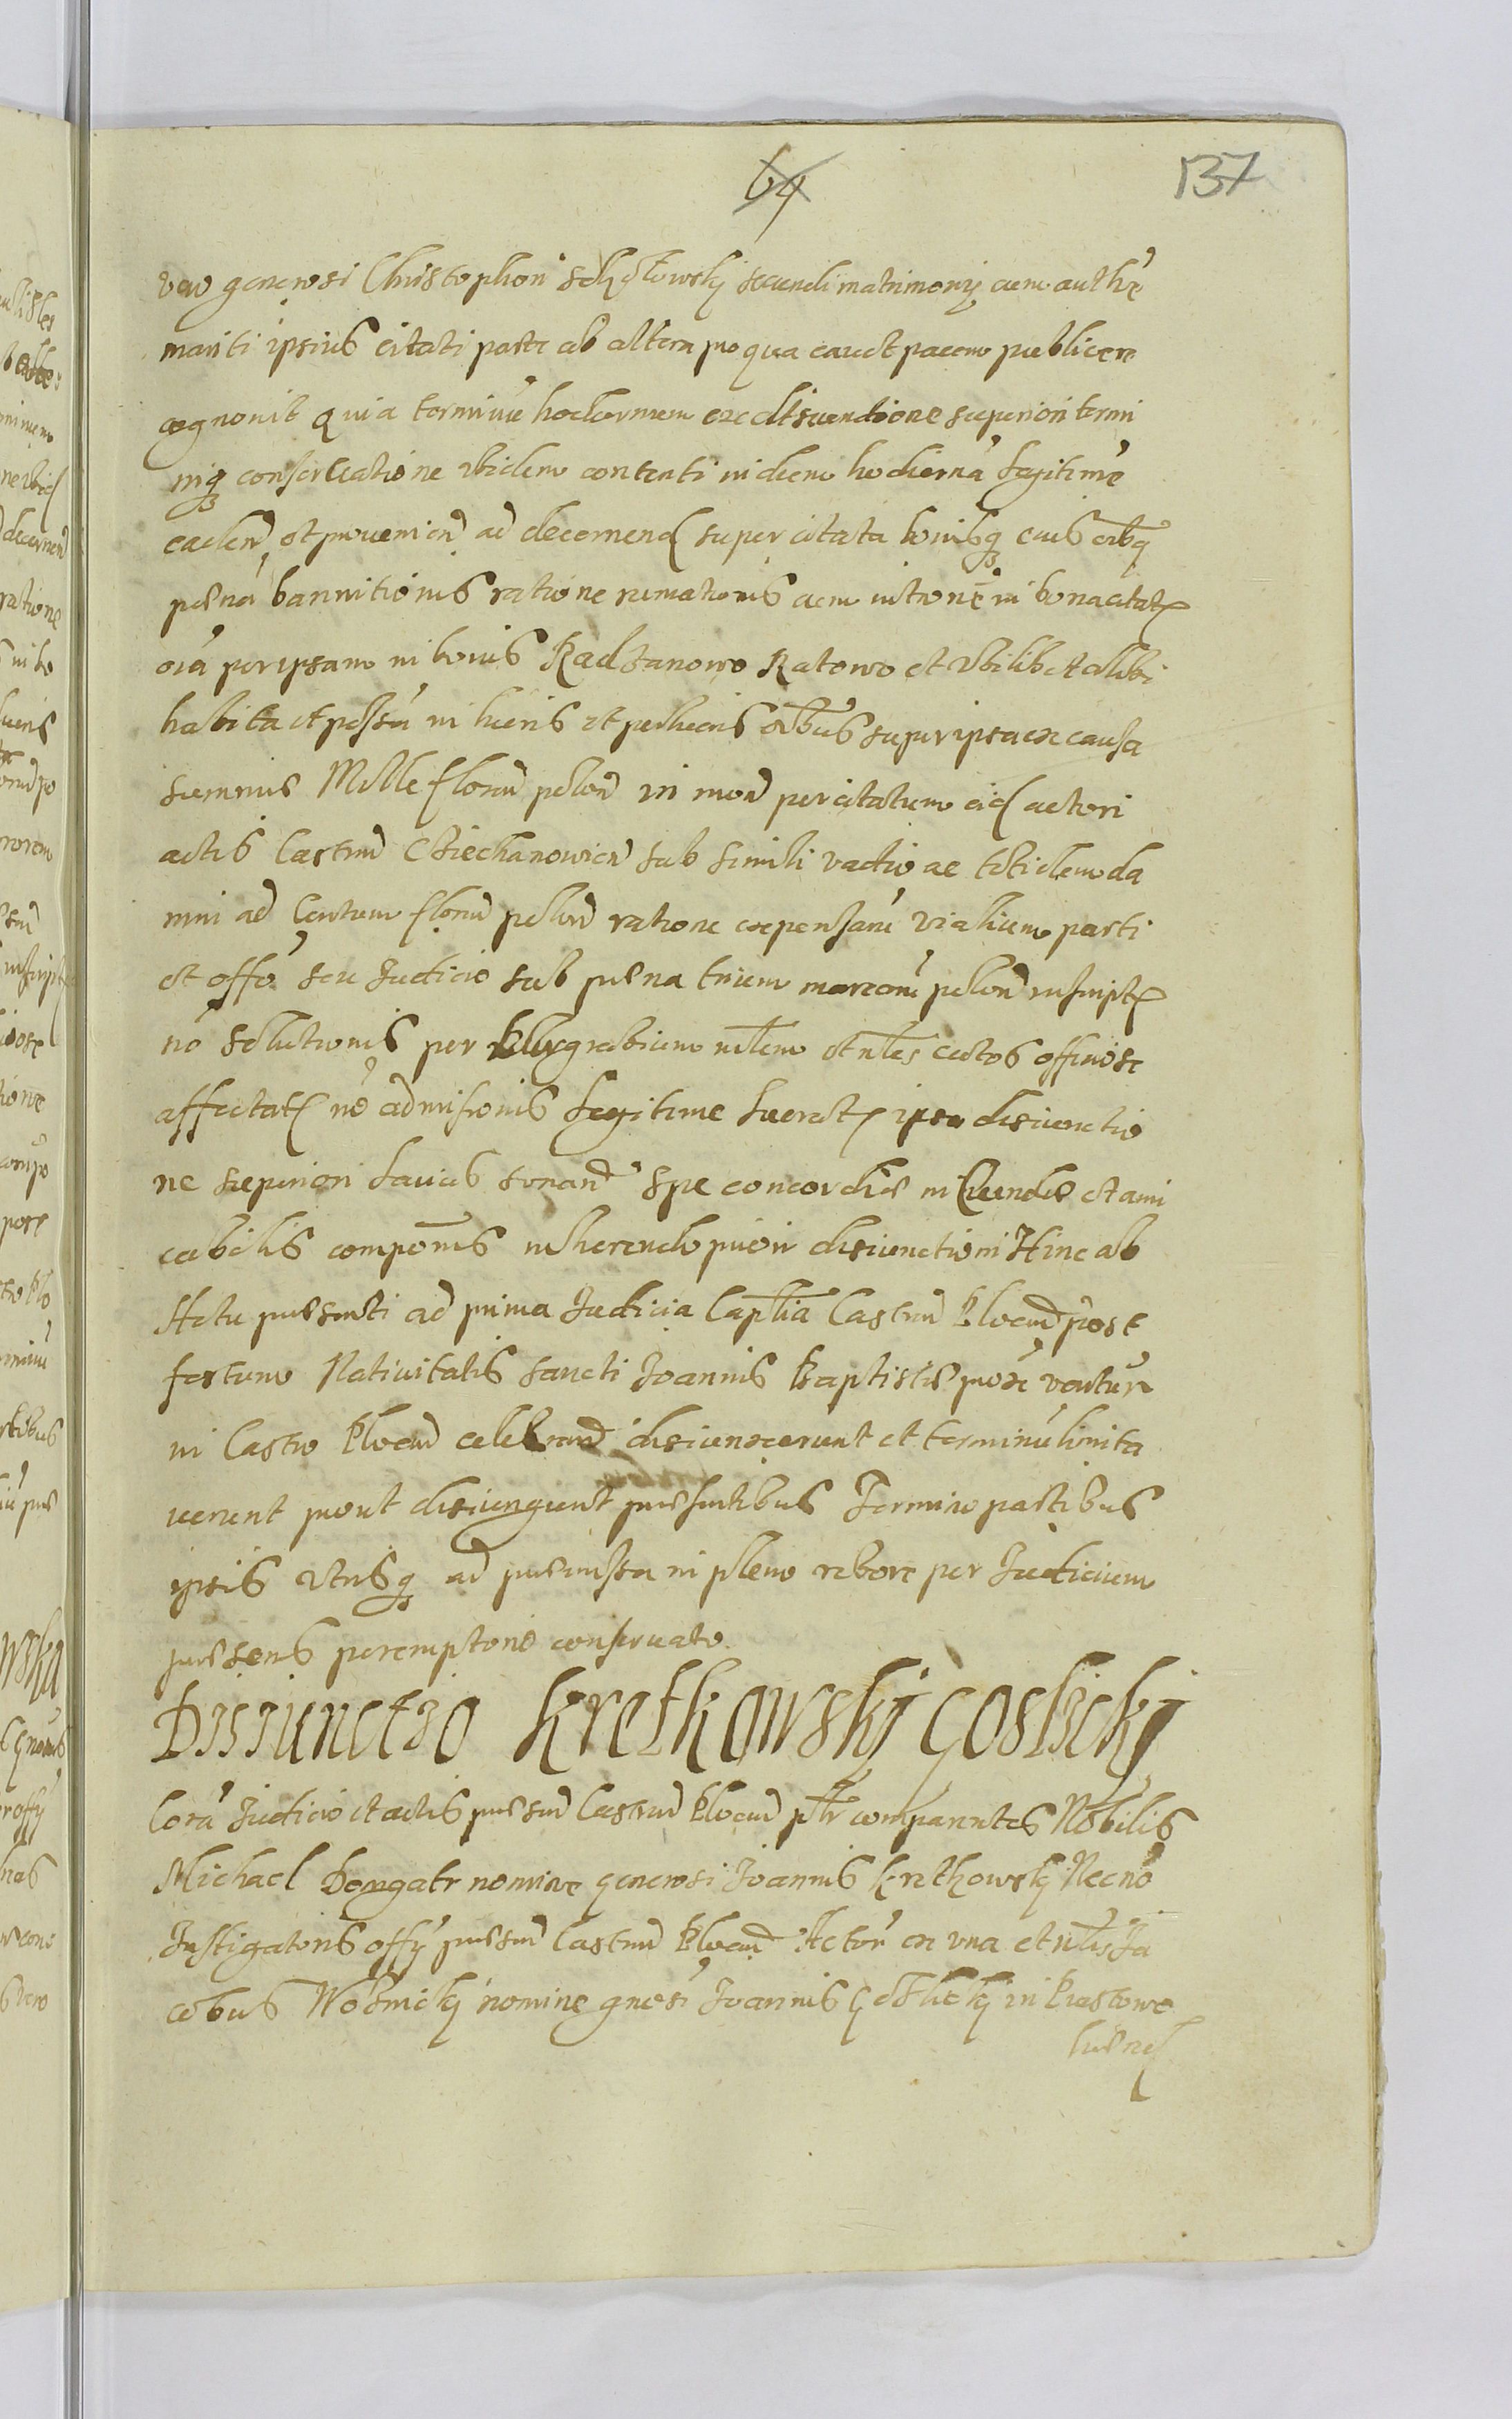 64
137
vero generosi Christophori secundi matrimonij cum authē
mariti ipsius citati parte ab altera pro qua cavet pacem publice re
cognovit Quia terminū hodiernum ex disiunctione superiori termi
niq conservatione ibidem contenti in diem hodiernā legitime
caden et provenien ad decernend super citata bonisq eius oībq
pænā bannitionis ratione rumationis cum intrōne in bona citatæ
oīa per ipsam in bonis Radzanowo Ratowo et ubilibet alibi
habita et possū in hæris et perhæris oībus super ipsa ex causa
summis Mille floren polon in mon per citatum eid actori
actis Castren Cziechanowien sub simili vadio ac totidem da
mni ad Centum floren polon ratione expensarū vialium parti
et offō seu Iudicio sub pæna trium marcarū polon inscriptæ
nō solutionis per nīlem et nīles actos officiose
affectatæ nō admisionis legitime ipsa disiunctio
ne superiori Latius sonan Spe concordiæ in eundæ et ami
cabilis compōnis inherendo priori disiunctioni Hinc ab
Actu præsenti ad prima Iudicia Capīlia Castren Plocen post
festum Nativitatis Sancti Joannis Baptistæ prox ventur
in Castro Plocen celebrand disiunxerunt et terminū limita
verunt prout disiungunt præsentibus Termino partibus
ipsis utrisq ad præmissa in pleno robore per Iudicium
præsens peremptorie conservato.
Disiunctio Kretkowskj Goslickj
Corā Iudicio et actis præsen Castren Plocen pītr comparentes Nobilis
Michael Dongatr nomine generosi Joannis Kretkowskj Necnō
Instigatoris offÿ præsen Castren Plocen Actor ex una et nīlis Ja
cobus Wosnickj nomine gnosi Joannis Goslickj in